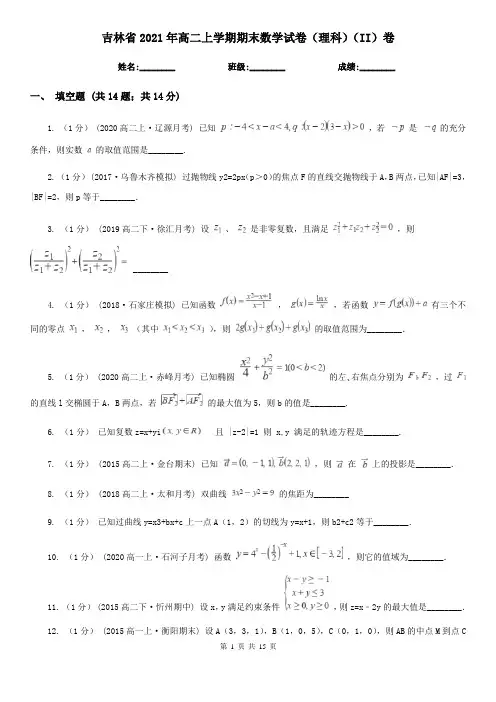 吉林省2021年高二上学期期末数学试卷（理科）（II）卷
姓名:________ 班级:________ 成绩:________
一、 填空题 (共14题；共14分)
1. （1分） (2020高二上·辽源月考) 已知 p：-4<x-a<4,q：(x-2)(3-x)>0 ，若 ¬p 是 ¬q 的充分
条件，则实数 a 的取值范围是________.
2. （1分）(2017·乌鲁木齐模拟) 过抛物线y2=2px（p＞0）的焦点F的直线交抛物线于A，B两点，已知|AF|=3，
|BF|=2，则p等于________．
3. （1分） (2019高二下·徐汇月考) 设 z₁ 、 z₂ 是非零复数，且满足 z₁²+z₁z₂+z₂²=0 ，则
(z₁/(z₁+z₂))²+(z₂/(z₁+z₂))²= ________
4. （1分） (2018·石家庄模拟) 已知函数 f(x)=(x²-x+1)/(x-1) ， g(x)=lnx/x ，若函数 y=f(g(x))+a 有三个不
同的零点 x₁ ， x₂ ， x₃ （其中 x₁<x₂<x₃ ），则 2g(x₁)+g(x₂)+g(x₃) 的取值范围为________．
5. （1分） (2020高二上·赤峰月考) 已知椭圆 x²/4+y²/b²=1(0<b<2) 的左,右焦点分别为 F₁,F₂ ，过 F₁
的直线l交椭圆于A，B两点，若 |BF₂|+|AF₂| 的最大值为5，则b的值是________.
6. （1分） 已知复数z=x+yi (x,y∈R) 且 |z-2|=1 则 x,y 满足的轨迹方程是________．
7. （1分） (2015高二上·金台期末) 已知 a=(0,-1,1),b(2,2,1) ，则 a 在 b 上的投影是________．
8. （1分） (2018高二上·太和月考) 双曲线 3x²-y²=9 的焦距为________
9. （1分） 已知过曲线y=x3+bx+c上一点A（1，2）的切线为y=x+1，则b2+c2等于________．
10. （1分） (2020高一上·石河子月考) 函数 y=4⁻ˣ-(1/2)⁻ˣ+1,x∈[-3,2] ，则它的值域为________．
11. （1分）(2015高二下·忻州期中) 设x，y满足约束条件 {x-y≥-1 x+y≤3 x≥0,y≥0 ，则z=x﹣2y的最大值是________．
12. （1分） (2015高一上·衡阳期末) 设A（3，3，1），B（1，0，5），C（0，1，0），则AB的中点M到点C
第 1 页 共 15 页